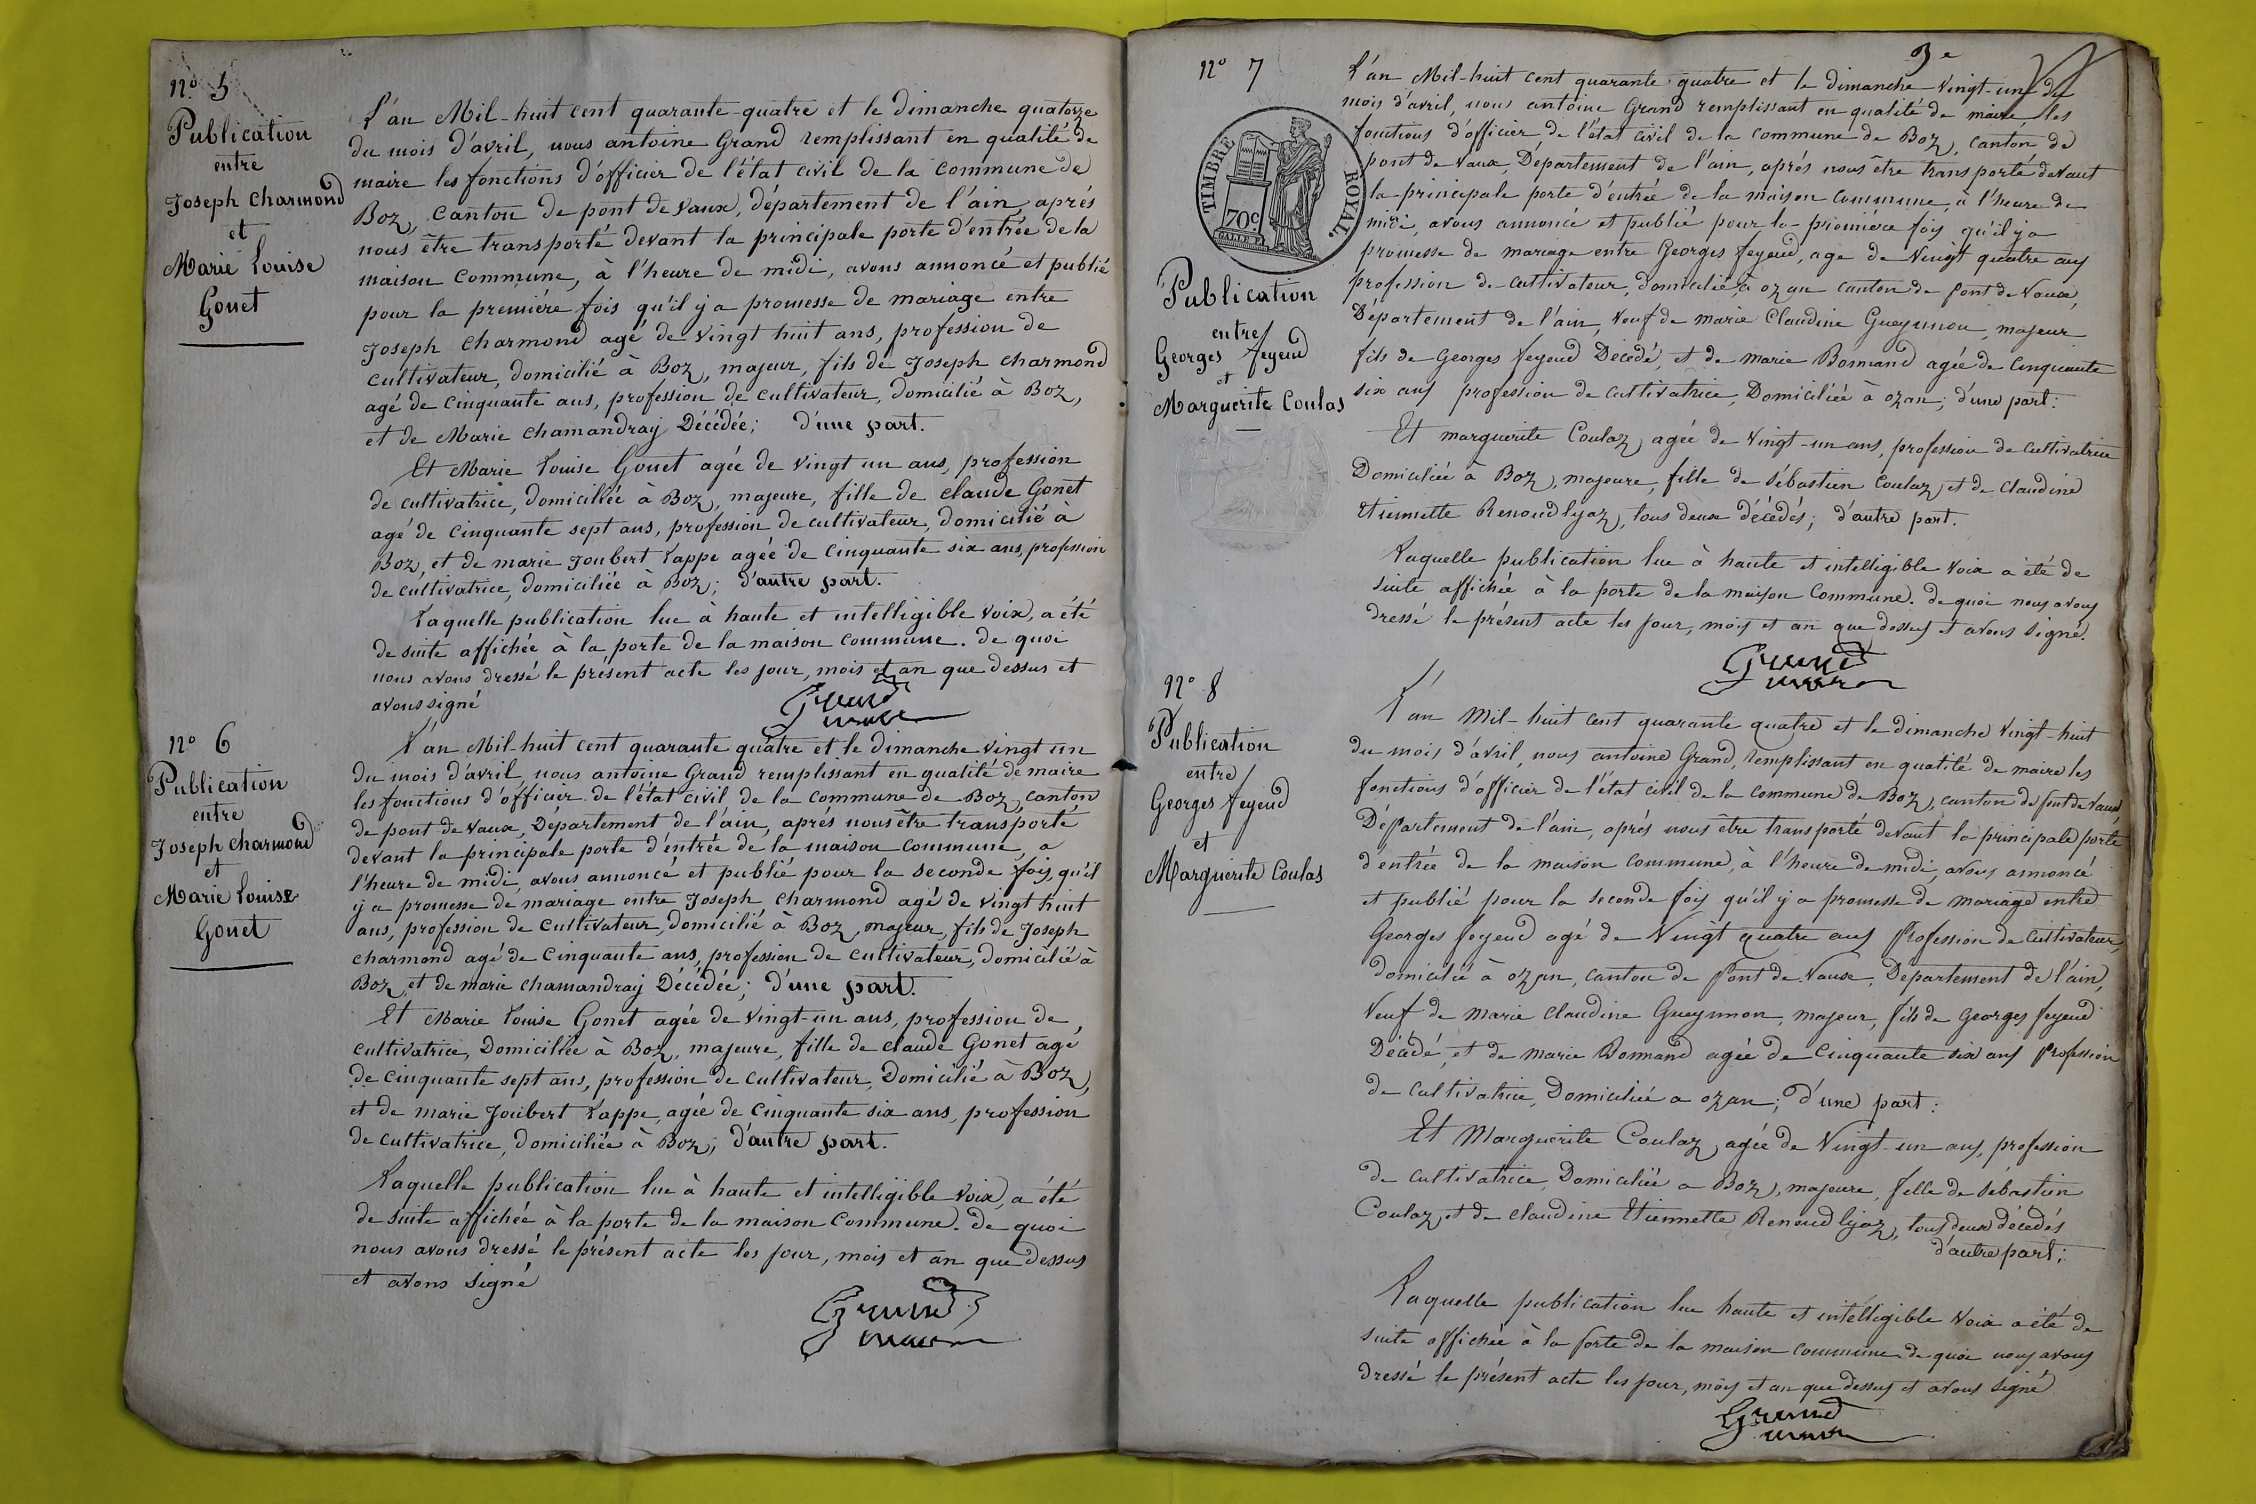 nº 5
Publication
entre
Joseph Charmond
et
Marie Louise
Gonet
L'an Mil-huit cent quarante-quatre et le dimanche quatorze
du mois d'avril, nous antoine Grand remplissant en qualité de
maire les fonctions d'officier de l'état civil de la Commune de
Boz, Canton de pont de vaux, département de l'ain, aprés
nous être transporté devant la principale porte d'entrée de la
maison Commune, à l'heure de midi, avons annoncé et publié
pour la premiére fois qu'il y a promesse de mariage entre
Joseph Charmond agé de vingt huit ans, profession de
cultivateur, domicilié à Boz, majeur, fils de Joseph charmond
agé de cinquante ans, profession de cultivateur, domicilié à Boz,
et de Marie chamandray Décédée; d'une part.
Et Marie Louise Gonet agée de vingt un ans, profession
de cultivatrice, domiciliée à Boz, majeure, fille de claude Gonet
agé de cinquante sept ans, profession de cultivateur, domicilié à
Boz, et de marie Joubert Lappe agée de cinquante six ans, profession
de cultivatrice, domiciliée à Boz; d'autre part.
Laquelle publication lue à haute et intelligible voix, a été
de suite affichée à la porte de la maison commune. de quoi
nous avons dressé le présent acte les jour, mois et an que dessus et
avons signé
Grand
maire
nº 6
Publication
entre
Joseph charmond
et
Marie Louise
Gonet
L'an Mil-huit cent quarante quatre et le dimanche vingt un
du mois d'avril, nous antoine Grand remplissant en qualité de maire
les fonctions d'officier de l'état civil de la commune de Boz, canton
de pont de vaux, Département de l'ain, aprés nous être transporté
devant la principale porte d'entrée de la maison commune, a
l'heure de midi, avons annoncé et publié pour la seconde fois, qu'il
y a promesse de mariage entre Joseph Charmond agé de vingt huit
ans, profession de cultivateur, domicilié à Boz, majeur, fils de Joseph
charmond agé de cinquante ans, profession de cultivateur, domicilié à
Boz, et de marie chamandray Décédée; d'une part.
Et Marie Louise Gonet agée de vingt-un ans, profession de
cultivatrice, Domiciliée à Boz, majeure, fille de claude Gonet agé
de cinquante sept ans, profession de cultivateur, Domicilié à Boz,
et de marie Joubert Lappe, agée de cinquante six ans, profession
de cultivatrice, domiciliée à Boz; d'autre part.
Laquelle publication lue à haute et intelligible voix, a été
de suite affichée à la porte de la maison Commune. de quoi
nous avons dressé le présent acte les jour, mois et an que dessus
et avons signé
Grand
maire
3e
nº 7
TIMBRE ROYAL
70c
Publication
entre
Georges feyeud
et
Marguerite Coulas
L'an Mil-huit cent quarante quatre et le dimanche vingt-un du
mois d'avril, nous antoine Grand remplissant en qualité de maire, les
fonctions d'officier de l'état civil de la commune de Boz, canton de
pont de vaux, Département de l'ain, aprés nous être transporté devant
la principale porte d'entrée de la maison commune, à l'heure de
midi, avons annoncé et publié pour la premiére fois qu'il y a
promesse de mariage entre Georges feyeud, age de vingt quatre ans
profession de cultivateur, domicilié à ozan canton de pont de vaux,
Département de l'ain, veuf de marie Claudine Gueymon, majeur
fils de Georges feyeud Décédé, et de marie Bonnand agée de cinquante
six ans profession de cultivatrice, Domiciliée à ozan; d'une part:
Et marguerite Coulaz, agée de vingt-un ans, profession de cultivatrice
Domiciliée à Boz, majeure, fille de sébastien Coulaz, et de Claudine
Etiennette Renoudlyaz, tous deux décédés; d'autre part.
Laquelle publication lue à haute et intelligible voix a été de
suite affichée à la porte de la maison Commune. de quoi nous avons
dressé le présent acte les jour, mois et an que dessus et avons signé.
Grand
maire
nº 8
Publication
entre
Georges feyeud
et
Marguerite Coulas
L'an Mil-huit cent quarante quatre et le dimanche vingt-huit
du mois d'avril, nous antoine Grand, remplissant en qualité de maire les
fonctions d'officier de l'état civil de la commune de Boz, canton de pont de vaux,
Département de l'ain, aprés nous être transporté devant la principale porte
d'entrée de la maison commune, à l'heure de midi, avons annoncé
et publié pour la seconde fois qu'il y a promesse de mariage entre
Georges feyeud agé de vingt quatre ans profession de cultivateur,
domicilié à ozan, canton de pont de vaux, Département de l'ain,
veuf de marie claudine Gueymon, majeur, fils de Georges feyeud
Décédé, et de marie Bonnand agée de cinquante six ans profession
de cultivatrice, Domiciliée a ozan; d'une part:
Et Marguerite Coulaz, agée de vingt-un ans, profession
de cultivatrice, Domiciliée a Boz, majeure, fille de sébastien
Coulaz, et de claudine Etiennette Renoudlyaz, tous deux décédés
d'autre part;
Laquelle publication lue haute et intelligible voix a été de
suite affichée à la porte de la maison commune de quoi nous avons
dressé le présent acte les jour, mois et an que dessus et avons signé
Grand
maire